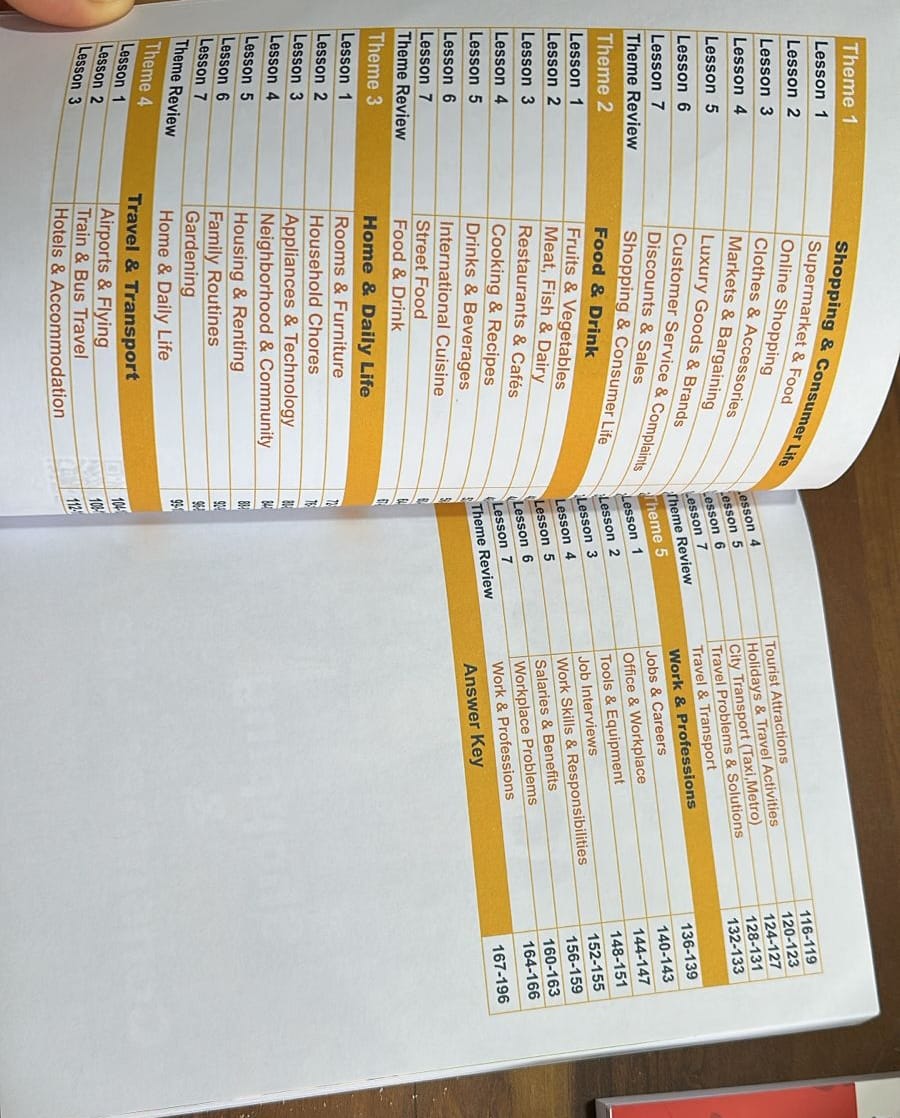 Theme 1 Shopping & Consumer Life
Lesson 1 Supermarket & Food
Lesson 2 Online Shopping
Lesson 3 Clothes & Accessories
Lesson 4 Markets & Bargaining
Lesson 5 Luxury Goods & Brands
Lesson 6 Customer Service & Complaints
Lesson 7 Discounts & Sales
Theme Review Shopping & Consumer Life
Theme 2 Food & Drink
Lesson 1 Fruits & Vegetables
Lesson 2 Meat, Fish & Dairy
Lesson 3 Restaurants & Cafés
Lesson 4 Cooking & Recipes
Lesson 5 Drinks & Beverages
Lesson 6 International Cuisine
Lesson 7 Street Food
Theme Review Food & Drink
Theme 3 Home & Daily Life
Lesson 1 Rooms & Furniture
Lesson 2 Household Chores
Lesson 3 Appliances & Technology
Lesson 4 Neighborhood & Community
Lesson 5 Housing & Renting
Lesson 6 Family Routines
Lesson 7 Gardening
Theme Review Home & Daily Life
Theme 4 Travel & Transport
Lesson 1 Airports & Flying
Lesson 2 Train & Bus Travel
Lesson 3 Hotels & Accommodation
esson 4 Tourist Attractions 116-119
esson 5 Holidays & Travel Activities 120-123
esson 6 City Transport (Taxi,Metro) 124-127
esson 7 Travel Problems & Solutions 128-131
heme Review Travel & Transport 132-133
heme 5 Work & Professions
Lesson 1 Jobs & Careers 136-139
Lesson 2 Office & Workplace 140-143
Lesson 3 Tools & Equipment 144-147
Lesson 4 Job Interviews 148-151
Lesson 5 Work Skills & Responsibilities 152-155
Lesson 6 Salaries & Benefits 156-159
Lesson 7 Workplace Problems 160-163
Theme Review Work & Professions 164-166
Answer Key 167-196